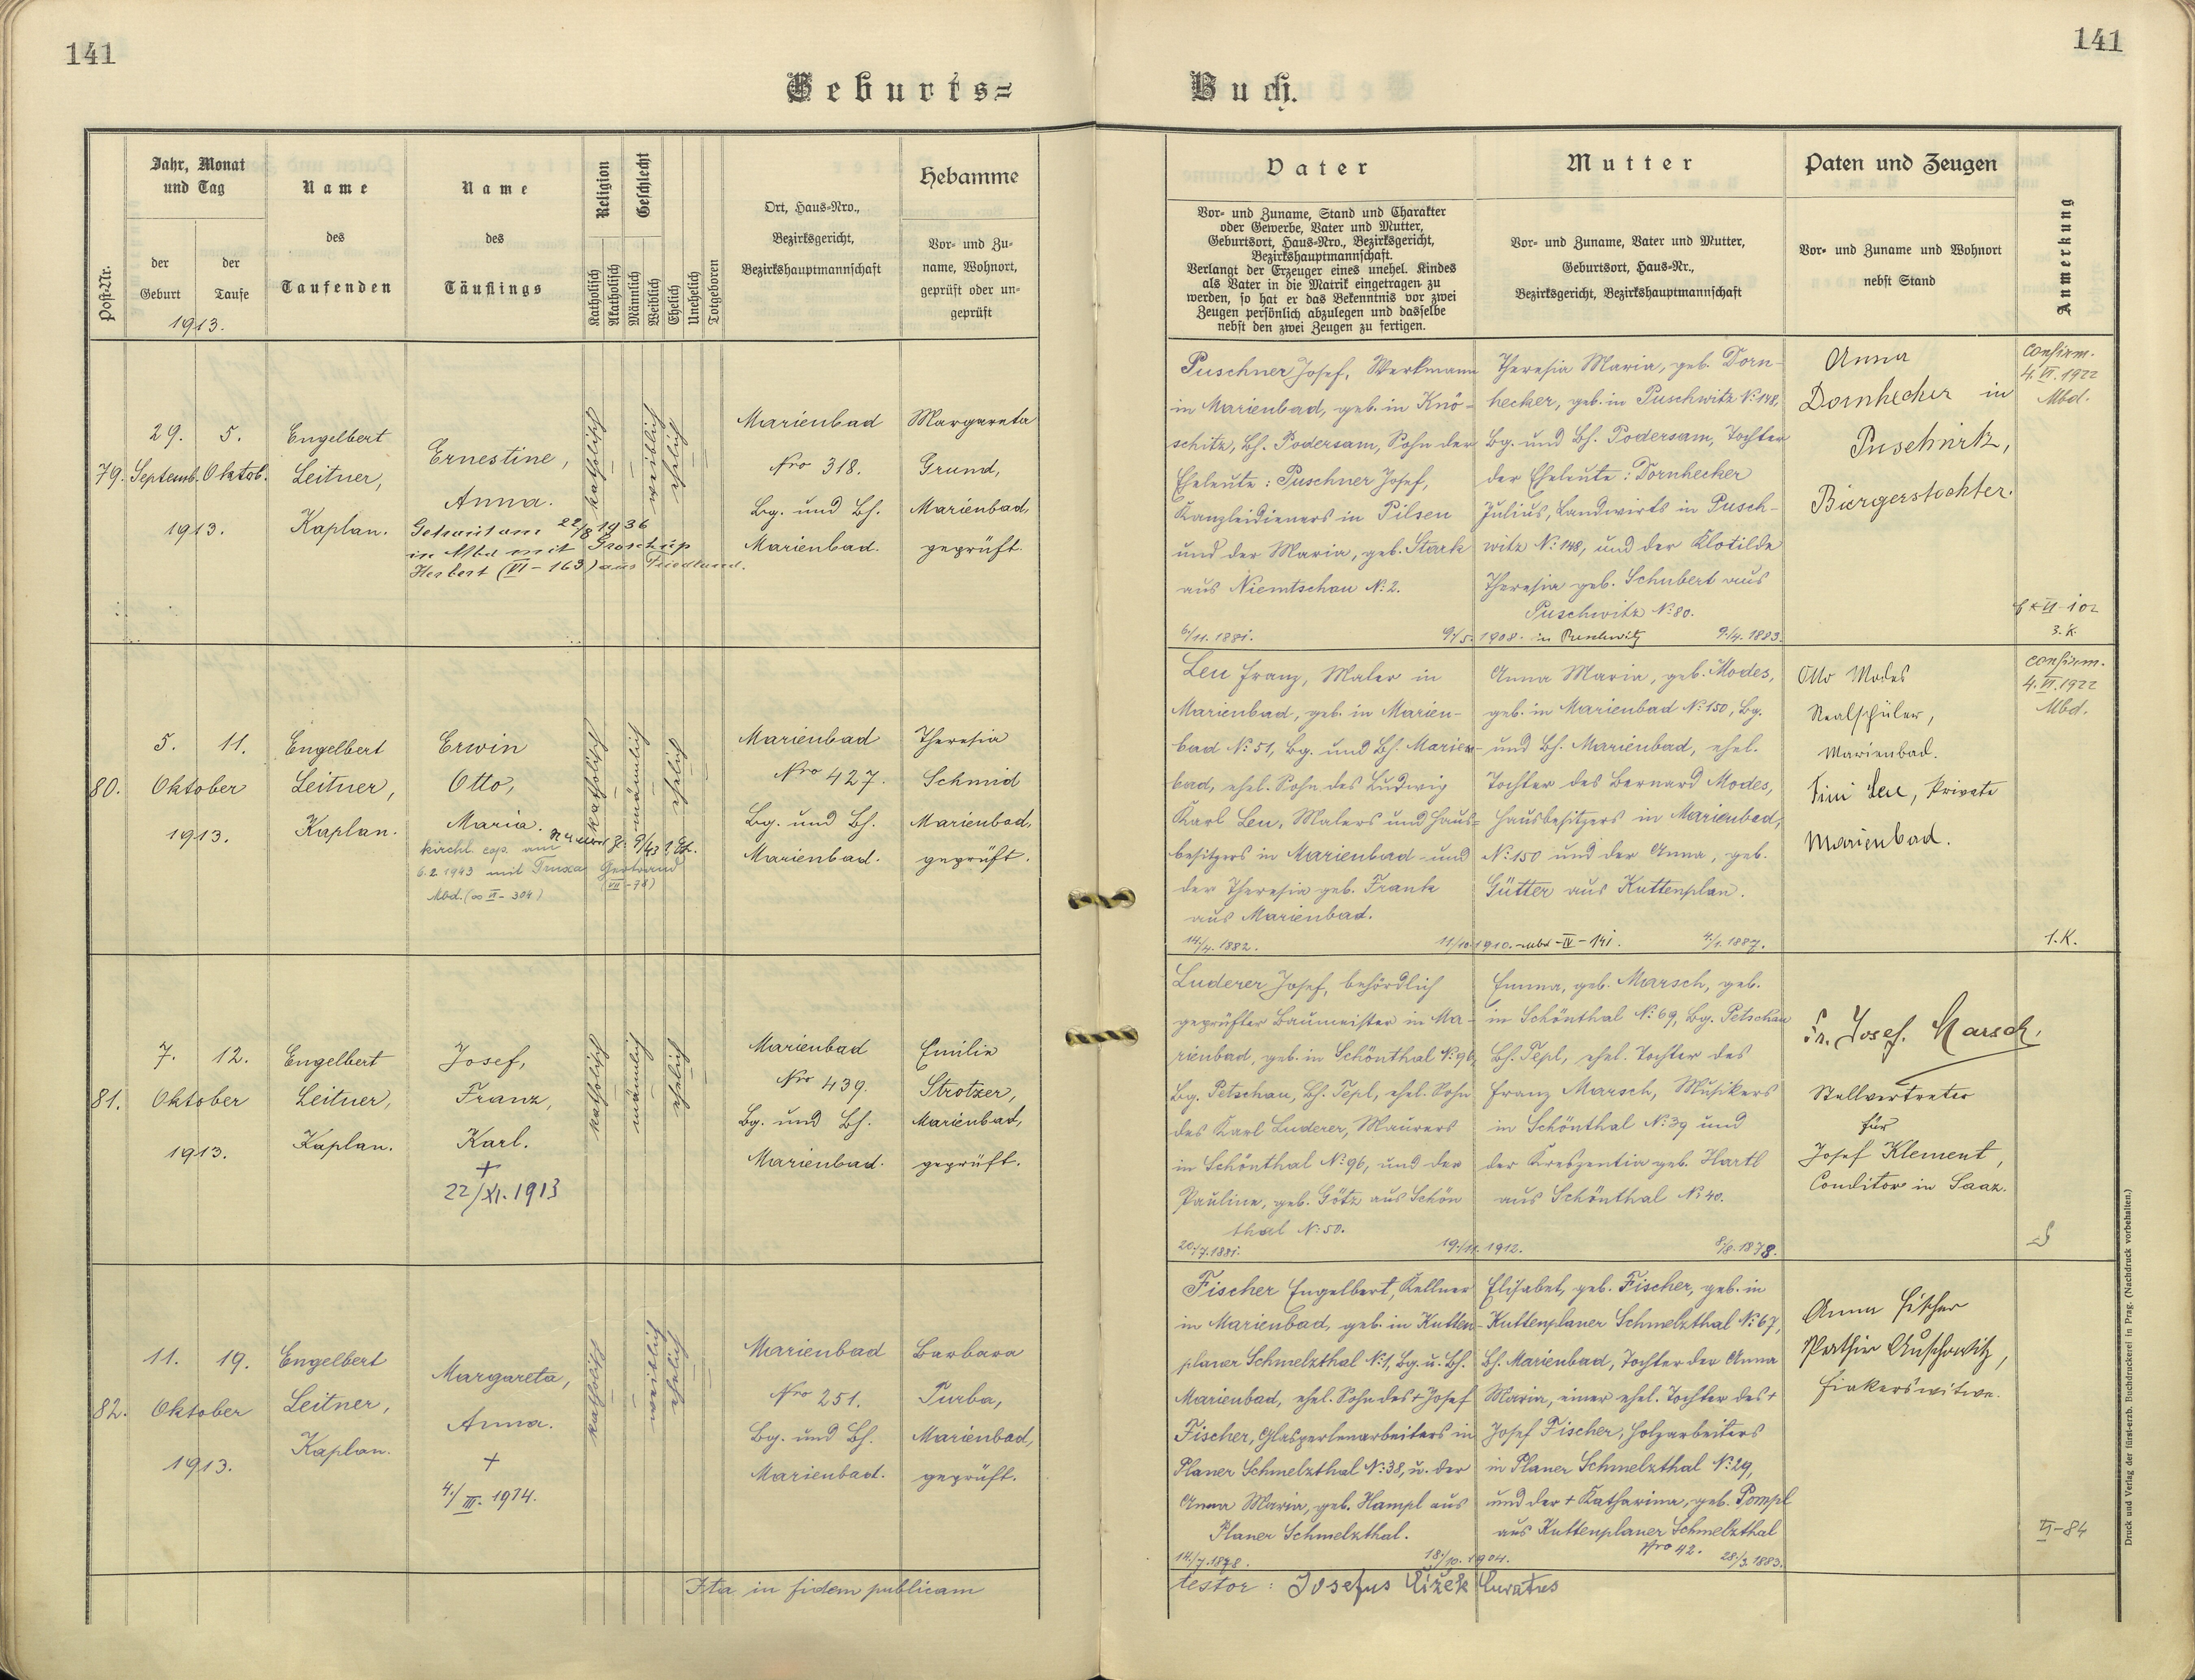 141
141
Geburts=
Buch.
Post-Nr.
Jahr, Monat
und Tag
der
Geburt
der
Taufe
1913.
Name
des
Taufenden
Name
des
Täuflings
Religion
Katholisch
Akatholisch
Geschlecht
Männlich
Weiblich
Ehelich
Unehelich
Totgeboren
Ort, Haus-Nro.,
Bezirksgericht,
Bezirkshauptmannschaft
Hebamme
Vor- und Zu-
name, Wohnort,
geprüft oder un-
geprüft
Vater
Vor- und Zuname, Stand und Charakter
oder Gewerbe, Vater und Mutter,
Geburtsort, Haus-Nro., Bezirksgericht,
Bezirkshauptmannschaft.
Verlangt der Erzeuger eines unehel. Kindes
als Vater in die Matrik eingetragen zu
werden, so hat er das Bekenntnis vor zwei
Zeugen persönlich abzulegen und dasselbe
nebst den zwei Zeugen zu fertigen.
Mutter
Vor- und Zuname, Vater und Mutter,
Geburtsort, Haus-Nr.,
Bezirksgericht, Bezirkshauptmannschaft
Paten und Zeugen
Vor- und Zuname und Wohnort
nebst Stand
Anmerkung
79.
29. 5.
Septemb. Oktob.
1913.
Engelbert
Leitner,
Kaplan.
Ernestine,
Anna.
Getraut am 22/8 1936
in Mbd mit Groschup
Herbert (VI - 163) aus Friedland.
katholisch
weiblich
ehelich
Marienbad
Nro 318.
Bg. und Bh.
Marienbad.
Margareta
Grund,
Marienbad,
geprüft.
Puschner Josef, Werkmann
in Marienbad, geb. in Knö-
schitz, Bh. Podersam, Sohn der
Eheleute: Puschner Josef,
Kanzleidieners in Pilsen
und der Maria, geb. Stark
aus Niemtschau N: 2.
6/11. 1881.
Theresia Maria, geb. Dorn-
hecker, geb. in Puschwitz N: 148,
Bg. und Bh. Podersam, Tochter
der Eheleute: Dornhecker
Julius, Landwirts in Pusch-
witz N: 148, und der Klotilde
Theresia geb. Schubert aus
Puschwitz N: 80.
9/5. 1908. in Puschwitz 9/4. 1883.
Anna
Dornhecker in
Puschwitz,
Bürgerstochter.
confirm.
4. VI. 1922
Mbd.
3. K.
80.
5. 11.
Oktober
1913.
Engelbert
Leitner,
Kaplan.
Erwin
Otto,
Maria.
kirchl. cop. am
6. 2. 1943 mit Truxa Gertraud
Mbd. (∞ VI - 304) (VII - 78)
katholisch
männlich
ehelich
Marienbad
Nro 427.
Bg. und Bh.
Marienbad.
Theresia
Schmid
Marienbad,
geprüft.
Leu Franz, Maler in
Marienbad, geb. in Marien-
bad N: 51, Bg. und Bh. Marien-
bad, ehel. Sohn des Ludwig
Karl Leu, Malers und Haus-
besitzers in Marienbad und
der Theresia geb. Frank
aus Marienbad.
14/4. 1882.
Anna Maria, geb. Modes,
geb. in Marienbad N: 150, Bg.
und Bh. Marienbad, ehel.
Tochter des Bernard Modes,
Hausbesitzers in Marienbad,
N: 150 und der Anna, geb.
Gütter aus Kuttenplan.
11/10. 1910. Mbd - IV - 141. 4/1. 1887.
Otto Modes
Realschüler,
Marienbad.
Fini Leu, Private
Marienbad.
confirm.
4. VI. 1922
Mbd.
1. K.
81.
7. 12.
Oktober
1913.
Engelbert
Leitner,
Kaplan.
Josef,
Franz,
Karl.
+
22/XI. 1913
katholisch
männlich
ehelich
Marienbad
Nro 439.
Bg. und Bh.
Marienbad.
Emilie
Strotzer,
Marienbad,
geprüft.
Luderer Josef, behördlich
geprüfter Baumeister in Ma-
rienbad, geb. in Schönthal N: 96,
Bg. Petschau, Bh. Tepl, ehel. Sohn
des Karl Luderer, Maurers
in Schönthal N: 96, und der
Pauline, geb. Götz aus Schön
thal N: 50.
20/7. 1881.
Emma, geb. Marsch, geb.
in Schönthal N: 69, Bg. Petschau
Bh. Tepl, ehel. Tochter des
Franz Marsch, Musikers
in Schönthal N: 39 und
der Kreszentia geb. Hartl
aus Schönthal N: 40.
19/11. 1912. 8/8. 1878.
Josef Marsch,
Stellvertreter
für
Josef Klement,
Conditor in Saaz.
82.
11. 19.
Oktober
1913.
Engelbert
Leitner,
Kaplan.
Margareta,
Anna.
+
4./III. 1914.
katholisch
weiblich
ehelich
Marienbad
Nro 251.
Bg. und Bh.
Marienbad.
Barbara
Purba,
Marienbad,
geprüft.
Fischer Engelbert, Kellner
in Marienbad, geb. in Kutten-
planer Schmelzthal N: 1, Bg. u. Bh.
Marienbad, ehel. Sohn des + Josef
Fischer, Glasperlenarbeiters in
Planer Schmelzthal N: 38, u. der
Anna Maria, geb. Hampl aus
Planer Schmelzthal.
14/7. 1878.
Elisabet, geb. Fischer, geb. in
Kuttenplaner Schmelzthal N: 67,
Bh. Marienbad, Tochter der Anna
Maria, einer ehel. Tochter des +
Josef Fischer, Holzarbeiters
in Planer Schmelzthal N: 29,
und der + Katharina, geb. Pompl
aus Kuttenplaner Schmelzthal
Nro 42.
18/10. 1904. 28/3. 1883.
Anna Fischer
Pathin Auschowitz,
Fiakerswitwe.
VI - 84
Ita in fidem publicam
testor: Josefus Čížek Curatus
Druck und Verlag der fürst-erzb. Buchdruckerei in Prag. (Nachdruck vorbehalten.)